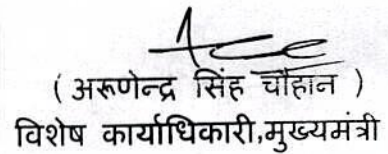 ( अरूणेन्द्र सिंह चौहान )
विशेष कार्याधिकारी,मुख्यमंत्री